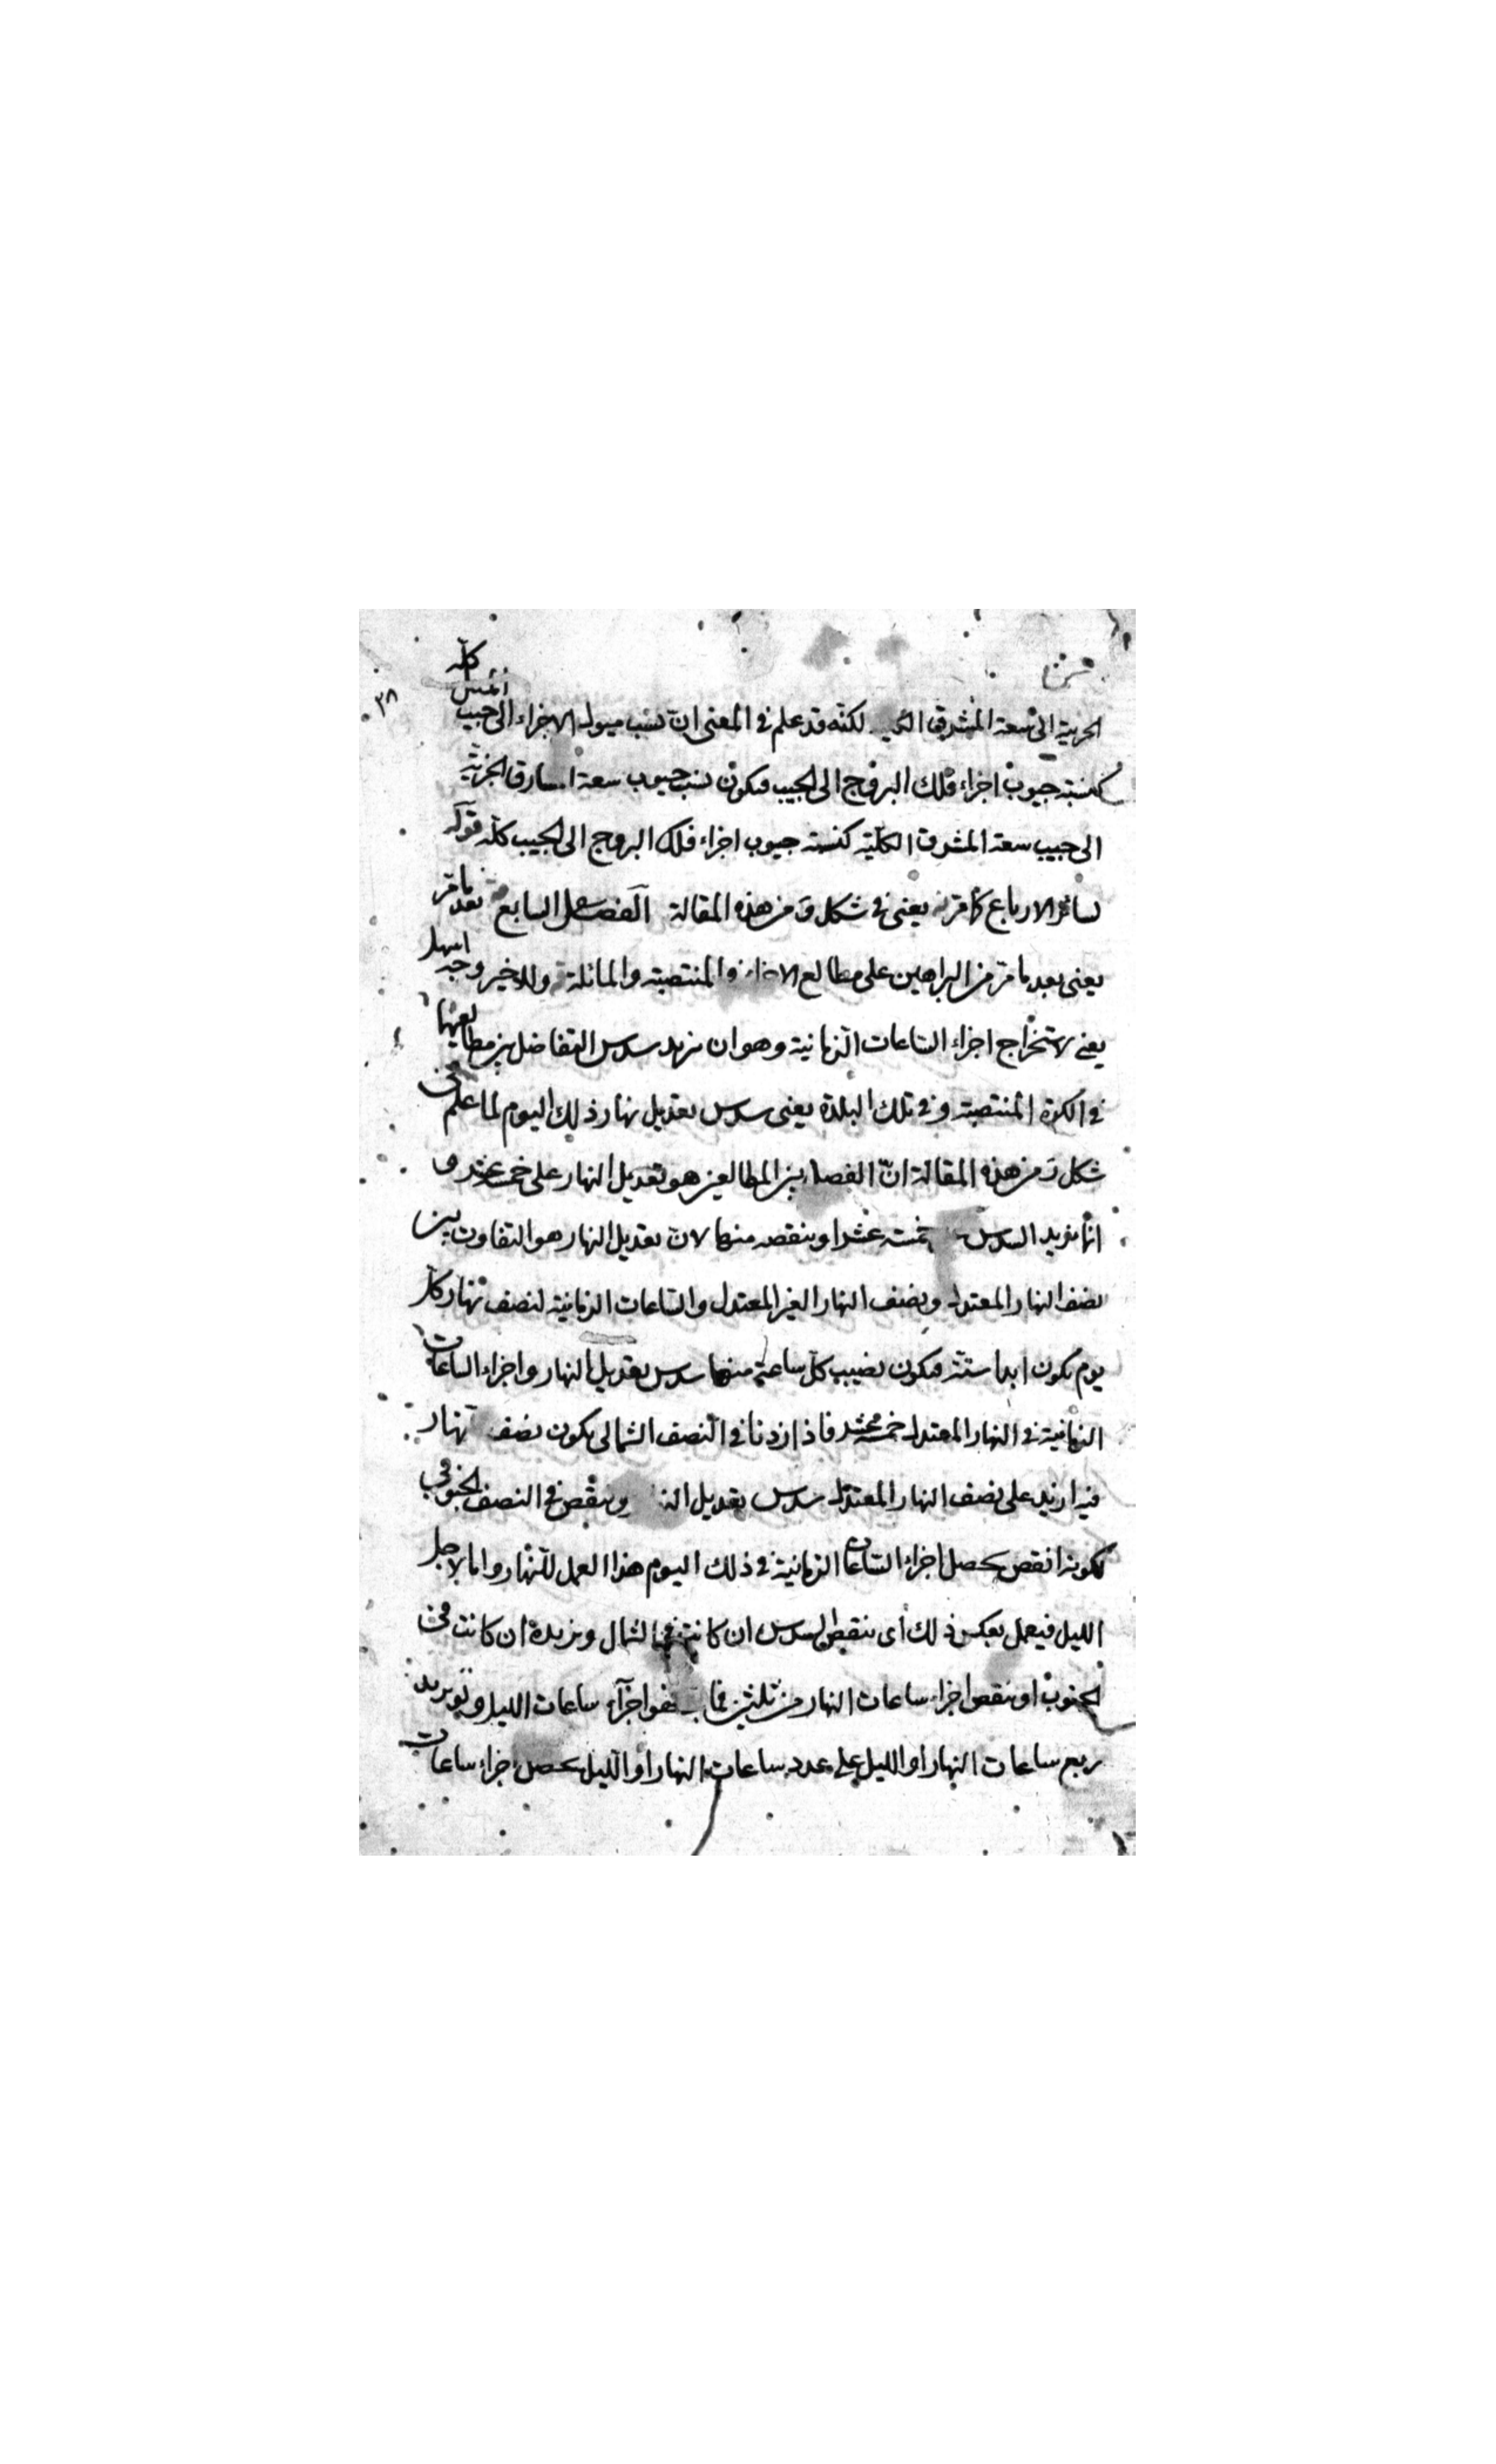 كله
٣٨
الجزئية الى سعة المشرق لكنه قد علم في المعنى ان نسب ميول الاجزاء الى جيب
كنسبة جيوب اجزاء فلك البروج الى الجيب فيكون نسب جيوب سعة المشارق الجزئية
الى جيب سعة المشرق الكلية كنسبة جيوب اجزاء فلك البروج الى الجيب كله قوله
لسائر الارباع كما مر يعنى في شكل و من هذه المقالة الفصل السابع بعد ما مر
يعنى بعد ما مر من البراهين على مطالع المنتصبة والمائلة وللاخير وجه اسهل
يعنى لاستخراج اجزاء الساعات الزمانية وهو ان نزيد سدس التفاضل بين مطالعها
في الكرة المنتصبة وفي تلك البلدة يعنى سدس تعديل نهار ذلك اليوم لما علم في
شكل ز من هذه المقالة ان الفصل بين المطالعين هو تعديل النهار على خمسة عشر
انما نزيد السدس خمسة عشر او ننقصه منها لان تعديل النهار هو التفاوت بين
نصف النهار المعتدل ونصف النهار الغير المعتدل والساعات الزمانية لنصف نهار كل
يوم يكون ابدا ستة فيكون نصيب كل ساعة منها سدس تعديل النهار واجزاء الساعات
الزمانية في النهار المعتدل خمسة عشر فاذا زدنا في النصف الشمالى لكون نصف نهار
فيه ازيد على نصف النهار المعتدل سدس تعديل وننقص في النصف الجنوبي
لكونه انقص يحصل اجزاء الساعات الزمانية في ذلك اليوم هذا العمل للنهار واما لاجل
الليل فيعمل بعكس ذلك اى ننقص السدس ان كانت في الشمال ونزيده ان كانت في
الجنوب او ننقص اجزاء ساعات النهار من ثلثين فما اجزاء ساعات الليل ولو نزيد
ربع ساعات النهار او الليل على عدد ساعات النهار او الليل يحصل اجزاء ساعات